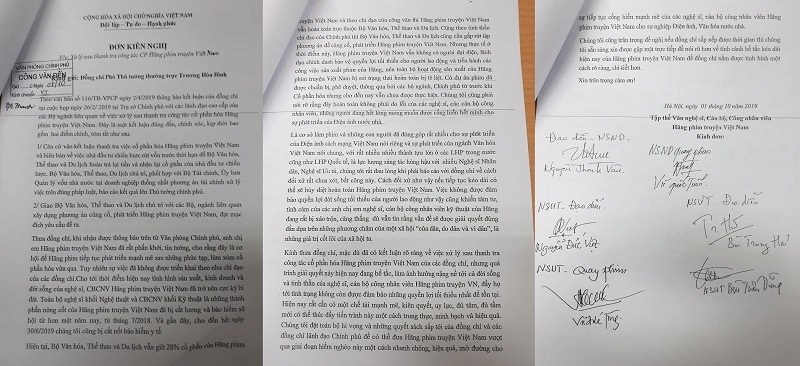 CỘNG HÒA XÃ HỘI CHỦ NGHĨA VIỆT NAM
Độc lập – Tự do – Hạnh phúc
ĐƠN KIẾN NGHỊ
V/v: Xử lý sau thanh tra công tác CP Hãng phim truyện Việt Nam
VĂN PHÒNG CHÍNH PHỦ
CÔNG VĂN ĐẾN
Kính gửi: Đồng chí Phó Thủ tướng thường trực Trương Hòa Bình
Theo văn bản số 116/TB-VPCP ngày 2/4/2019 thông báo kết luận của đồng chí
tại cuộc họp ngày 26/2/ 2019 tại Trụ sở Chính phủ với các lãnh đạo cao cấp của
các Bộ ngành liên quan về việc xử lý sau thanh tra công tác cổ phần hóa Hãng
phim truyện Việt Nam. Đây là một kết luận đúng đắn, chính xác, kịp thời bao
gồm hai điểm chính, tóm tắt như sau:
1/ Căn cứ vào kết luận thanh tra việc cổ phần hóa Hãng phim truyện Việt Nam
và biên bản về việc nhà đầu tư chiến lược rút vốn trước thời hạn để Bộ Văn hóa,
Thể thao và Du lịch hoàn trả lại tiền và nhận lại cổ phần của nhà đầu tư chiến
lược. Bộ Văn hóa, Thể thao, Du lịch chủ trì, phối hợp với Bộ Tài chính, Ủy ban
Quản lý vốn nhà nước tại doanh nghiệp thống nhất phương án tài chính xử lý
việc trên đúng pháp luật, báo cáo kết quả lên Thủ tướng chính phủ.
2/ Giao Bộ Văn hóa, Thể thao và Du lịch chủ trì với các Bộ, ngành liên quan
xây dựng phương án củng cố, phát triển Hãng phim truyện Việt Nam, đạt mục
đích yêu cầu đề ra.
Thưa đồng chí, khi nhận được thông báo trên từ Văn phòng Chính phủ, anh chị
em Hãng phim truyện Việt Nam đã rất phấn khởi, tin tưởng, cho rằng đây là cơ
hội để Hãng phim tiếp tục phát triển mạnh mẽ sau những phức tạp, lùm xùm cổ
phần hóa vừa qua. Tuy nhiên sự việc đã không được triển khai theo như chỉ đạo
của các đồng chí.Cho tới thời điểm hiện nay tình hình sản xuất, kinh doanh và
đời sống của nghệ sĩ, CBCNV Hãng phim truyện Việt Nam đã trở nên cực kỳ bi
đát. Toàn bộ nghệ sĩ khối Nghệ thuật và CBCNV khối Kỹ thuật là những thành
phần nòng cốt của Hãng phim truyện Việt Nam đã bị cắt lương và bảo hiểm xã
hội từ hơn một năm nay, từ tháng 7/2018. Và gần đây, cho đến hết ngày
30/6/2019 chúng tôi cũng bị cắt nốt bảo hiểm y tế.
Hiện tại, Bộ Văn hóa, Thể thao và Du lịch vẫn giữ 28% cổ phần của Hãng phim
truyện Việt Nam và theo chỉ đạo của công văn thì Hãng phim truyện Việt Nam
vẫn hoàn toàn trực thuộc Bộ Văn hóa, Thể thao và Du lịch. Cũng theo tinh thần
chỉ đạo của Chính phủ thì Bộ Văn hóa, Thể thao và Du lịch cũng cần gấp rút lập
phương án để củng cố, phát triển Hãng phim truyện Việt Nam. Nhưng thực tế ở
thời điểm này, Hãng phim truyện Việt Nam vẫn không có người đại diện, lãnh
đạo chính danh bảo vệ quyền lợi tối thiểu cho người lao động và tiến hành các
công việc của sản xuất phim của Hãng, nên toàn bộ hoạt động sản xuất của Hãng phim
truyện Việt Nam bị rơi trạng thái hoàn toàn bị tê liệt. Có dự án phim đã
được chuẩn bị, phê duyệt, thông qua bởi các bộ ngành, Chính phủ từ trước khi
Cổ phần nhưng cho đến nay vẫn chưa được thực hiện. Chúng tôi cũng phải nói
rõ rằng đây hoàn toàn không phải do lỗi của các nghệ sĩ, các cán bộ công nhân
viên, những người đang hết lòng mong muốn được cống hiến hết mình cho
sự phát triển của Điện ảnh nước nhà.
Là cơ sở làm phim và những con người đã đóng góp rất nhiều cho sự phát triển
của Điện ảnh cách mạng Việt Nam nói riêng và sự phát triển của ngành Văn hóa
Việt Nam nói chung, với rất nhiều nhiều thành tựu lớn ở các LHP trong nước
cũng như LHP Quốc tế, là lực lượng sáng tác hùng hậu với nhiều Nghệ sĩ Nhân
dân, Nghệ sĩ Ưu tú, chúng tôi rất đau lòng khi phải báo cáo với đồng chí về cách
đối xử rất chua xót, bất công này. Cách đối xử như vậy nếu tiếp tục kéo dài có
thể sẽ hủy diệt hoàn toàn Hãng phim truyện Việt Nam. Việc không được đảm
bảo quyền lợi đời sống tối thiểu của người lao động như vậy cũng khiến tâm tư,
tình cảm của các anh chị em nghệ sĩ, cán bộ công nhân viên kỹ thuật của Hãng
đang rất bị xáo trộn, căng thẳng dù vẫn tin rằng vấn đề sẽ được giải quyết đúng
đắn dựa trên những phương châm của một xã hội "của dân, do dân và vì dân", là
những giá trị cốt lõi của xã hội ta.
Kính thưa đồng chí, mặc dù đã có kết luận rõ ràng về việc xử lý sau thanh tra
công tác cổ phần Hãng phim truyện Việt Nam của các đồng chí, nhưng quá
trình giải quyết hiện nay đang bế tắc, làm ảnh hưởng nặng nề tới cả đời sống
và tinh thần của nghệ sĩ, cán bộ công nhân viên Hãng phim truyện VN, đẩy họ
tới tình trạng không còn được đảm bảo những quyền lợi tối thiểu nhất để tồn tại.
Hiện nay rất cần có một chế tài mạnh mẽ, kiên quyết, uy lực, đủ tâm, đủ tầm
mới có thể thúc đẩy tiến trình này một cách trung thực, minh bạch và hiệu quả.
Chúng tôi đặt toàn bộ hi vọng và những quyết sách sắp tới của đồng chí và các
đồng chí lãnh đạo Chính phủ để có thể đưa Hãng phim truyện Việt Nam vượt
qua giai đoạn hiểm nghèo này một cách nhanh chóng, hiệu quả, mở đường cho
sự tiếp tục cống hiến mạnh mẽ của các nghệ sĩ, cán bộ công nhân viên Hãng
phim truyện Việt Nam cho sự nghiệp Điện ảnh, Văn hóa nước nhà.
Chúng tôi cũng trân trọng đề nghị nếu đồng chí sắp xếp được thời gian thì chúng
tôi sẵn sàng xin được gặp mặt trực tiếp để nói rõ hơn về tình cảnh bế tắc kéo dài
hiện nay của Hãng phim truyện Việt Nam để đồng chí nắm được tình hình một
cách rõ ràng, chi tiết hơn.
Xin trân trọng cảm ơn!
Hà Nội, ngày 01 tháng 10 năm 2019
Tập thể Văn nghệ sĩ, Cán bộ, Công nhân viên
Hãng phim truyện Việt Nam
Kính đơn:
Đạo diễn - NSND.
Nguyễn Thanh Vân
NSND Quay phim
Vũ Quốc Tuấn
NSƯT - Đạo diễn
Nguyễn Đức Việt
NSƯT Đạo diễn
Bùi Trung Hải
NSƯT - Quay phim
NSƯT Bùi Tuấn Dũng